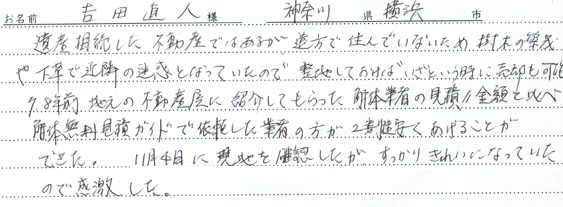 お名前 吉田直人 様 神奈川 県 横浜 市
遺産相続した不動産ではあるが、遠方で住んでいないため樹木の繁茂
や下草で近隣の迷惑となっていたので 整地しておけばいざという時に売却も可能
7.8年前 地元の不動産屋に紹介してもらった解体業者の見積り金額と比べ
解体無料見積ガイドで依頼した業者の方が2割程安くあげることが
できた。 11月4日に現地を確認したが、すっかりきれいになっていた
ので感激した。